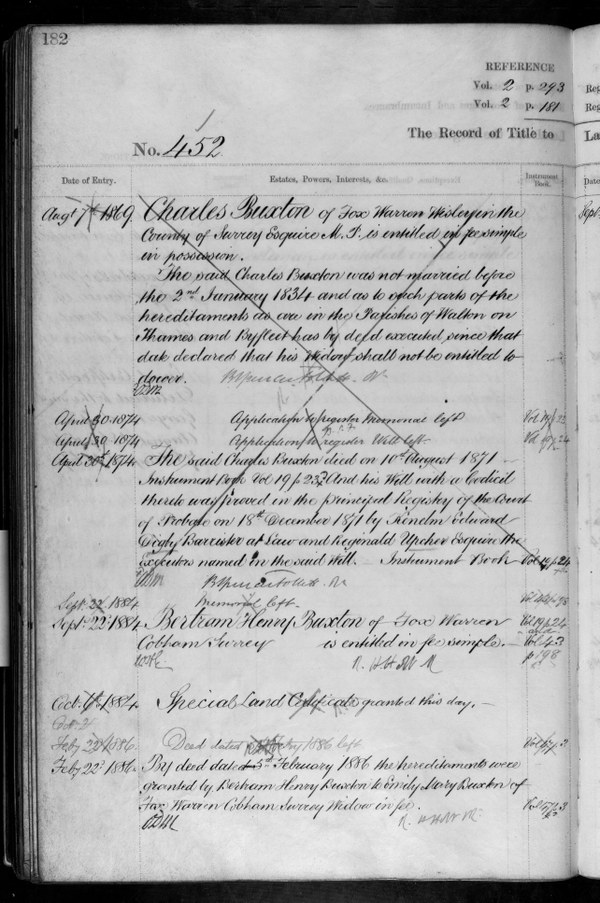 182
REFERENCE
Vol. 2 p. 293
Vol. 2 p. 181
The Record of Title to
La
No. 452
Date of Entry.
Estates, Powers, Interests, &c.
Instrument Book.
Augt 7th 1869 Charles Buxton of Fox Warren Wisley in the
County of Surrey Esquire M.P. is entitled in fee simple
in possession.
The said Charles Buxton was not married before
the 2nd January 1834 and as to such parts of the
hereditaments as are in the Parishes of Walton on
Thames and Byfleet has by deed executed since that
date declared that his widow shall not be entitled to
dower.
April 30 1874 Application to register Memorial left Vol 19 p 23
April 30 1874 Application to register Will left Vol 19 p 24
April 30th 1874 The said Charles Buxton died on 10th August 1871 –
Instrument Book Vol 19 p 23 And his Will with a Codicil
thereto was proved in the principal Registry of the Court
of Probate on 18th December 1871 by Kenelm Edward
Digby Barrister at Law and Reginald Upcher Esquire the
Executors named in the said Will. – Instrument Book Vol 19 p 24
Sept. 22 1884 Memorial left. Vol 43 p 198
Sept. 22d 1884 Bertram Henry Buxton of Fox Warren Vol 19 p 24
and
Cobham Surrey is entitled in fee simple. – Vol 43
p 198
Oct. 1884 Special Land Certificate granted this day. –
Feby 22d 1886 Deed dated 5th Feby 1886 left
Feby 22d 1886. By deed dated 5th February 1886 the hereditaments were
granted by Bertram Henry Buxton to Emily Mary Buxton of
Fox Warren Cobham Surrey Widow in fee.